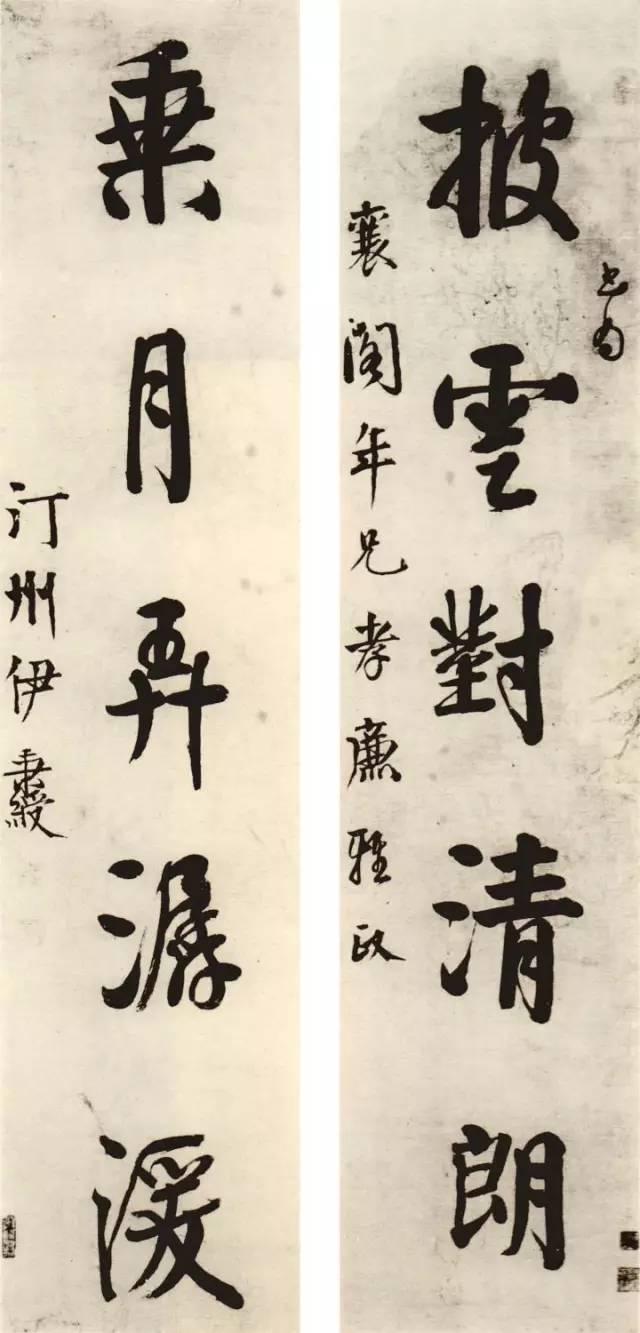 書為
披雲對清朗
襄閣年兄孝廉雅政
乘月弄潺湲
汀州伊秉綬